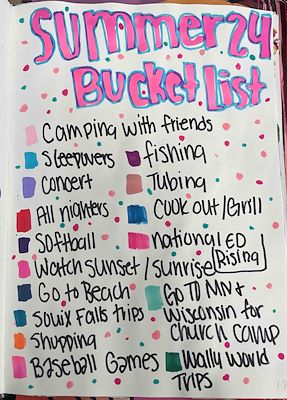 Summer 24
Bucket List
Camping with friends
Sleepovers
fishing
Concert
Tubing
All nighters
Cook out/Grill
Softball
national ED Rising
Watch sunset/sunrise
Go to Beach
Go TO MN &
Wisconsin for
Church Camp
Souix Falls trips
Shopping
Baseball Games
Wally World
Trips